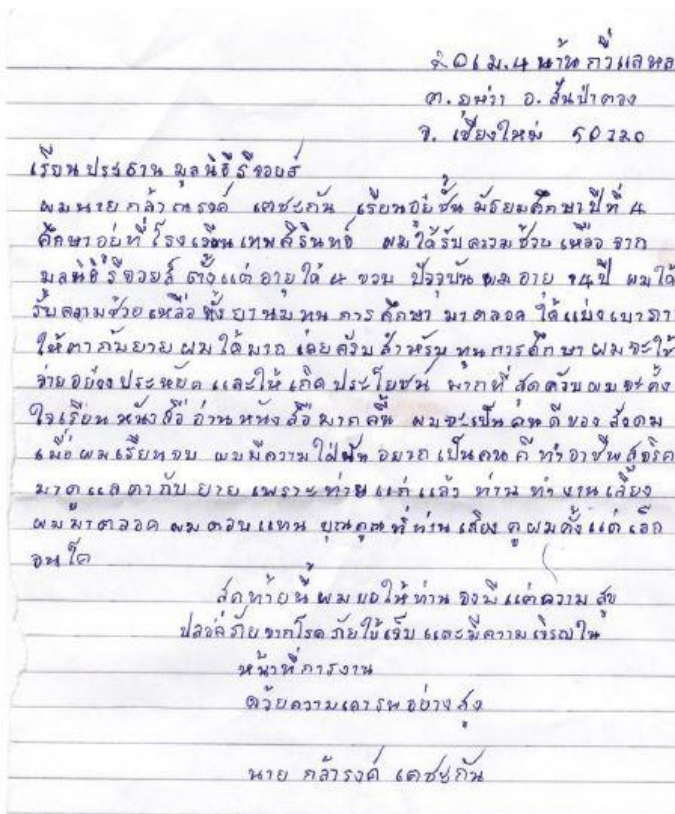 ม.4 บ้านกิ่วแลหล
ต. อ. สันป่าตอง
จ. เชียงใหม่ 50120
เรียนประธานมูลนิธีรีจอยส์
ผมนายกล้าณรงค์ เตชะกัน เรียนอยู่ชั้น มัธยมศึกษาปีที่ 4
ศึกษาอยู่ที่โรงเรียนเทพศิรินทร์ ผมได้รับความช่วยเหลือ จาก
มูลนิธิรีจอยส์ ตั้งแต่อายุได้ 4 ขวบ ปัจจุบันผมอายุ 14 ปี ผมได้
รับความช่วยเหลือทั้ง ทุนการศึกษา มาตลอด ได้แบ่งเบาภา
ให้ตากับยายผมได้มาก เลยครับสำหรับ ทุนการศึกษา ผมจะใช้
จ่ายอย่างประหยัด และให้เกิดประโยชน์ มากที่สุดครับผมจะตั้ง
ใจเรียนหนังสือ อ่านหนังสือมากขึ้น ผมจะเป็นคนดีของ สังคม
เมื่อผมเรียนจบ ผมมีความใฝ่ฝัน อยากเป็นคนดี ทำอาชีพสุจริต
มาดูแลตากับยาย เพราะท่านแก่แล้ว ท่านทำงานเลี้ยง
ผมมาตลอด ผมตอบแทน บุญคุณที่ท่านเลี้ยงดูผมตั้งแต่เล็ก
จนโต
สุดท้ายนี้ผมขอให้ท่าน จงมีแต่ความสุข
ปลอดภัยจากโรคภัยไข้เจ็บ และมีความเจริญใน
หน้าที่การงาน
ด้วยความเคารพอย่างสูง
นาย กล้ารงค์ เตชะกัน